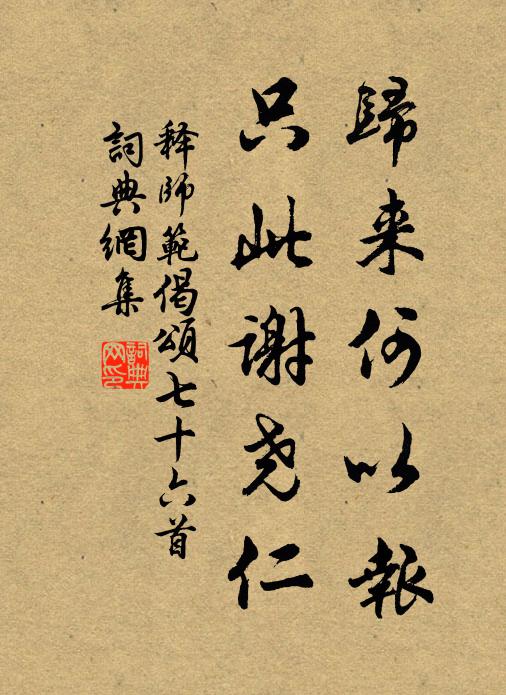 歸来何以報
只此謝尧仁
释師範偈頌七十六首
詞典網集
詞典网印